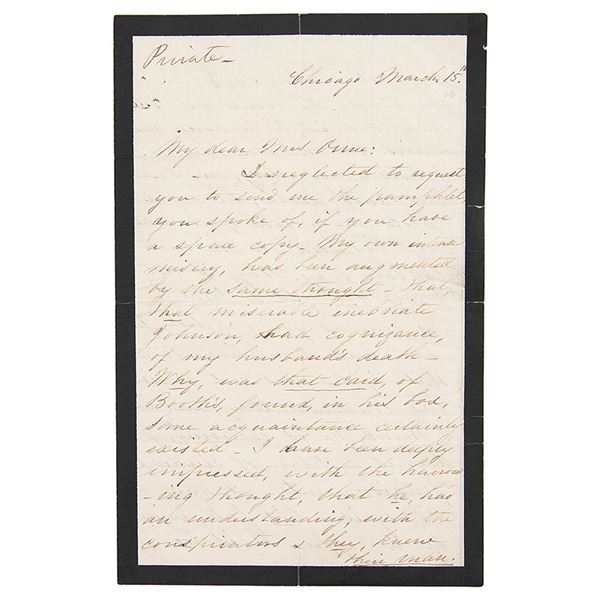 Private –
Chicago March, 15th
66
My dear Mrs Orne:
I neglected to request
you to send me the pamphlet,
you spoke of, if you have
a spare copy – My own intense
misery, has been augmented,
by the same thought – that,
that miserable inebriate
Johnson, had cognizance,
of my husband's death –
Why, was that card, of
Booth's, found, in his box,
some acquaintance certainly
existed – I have been deeply
impressed, with the harrow
-ing thought, that he, had
an understanding, with the
conspirators & they, knew
their man.